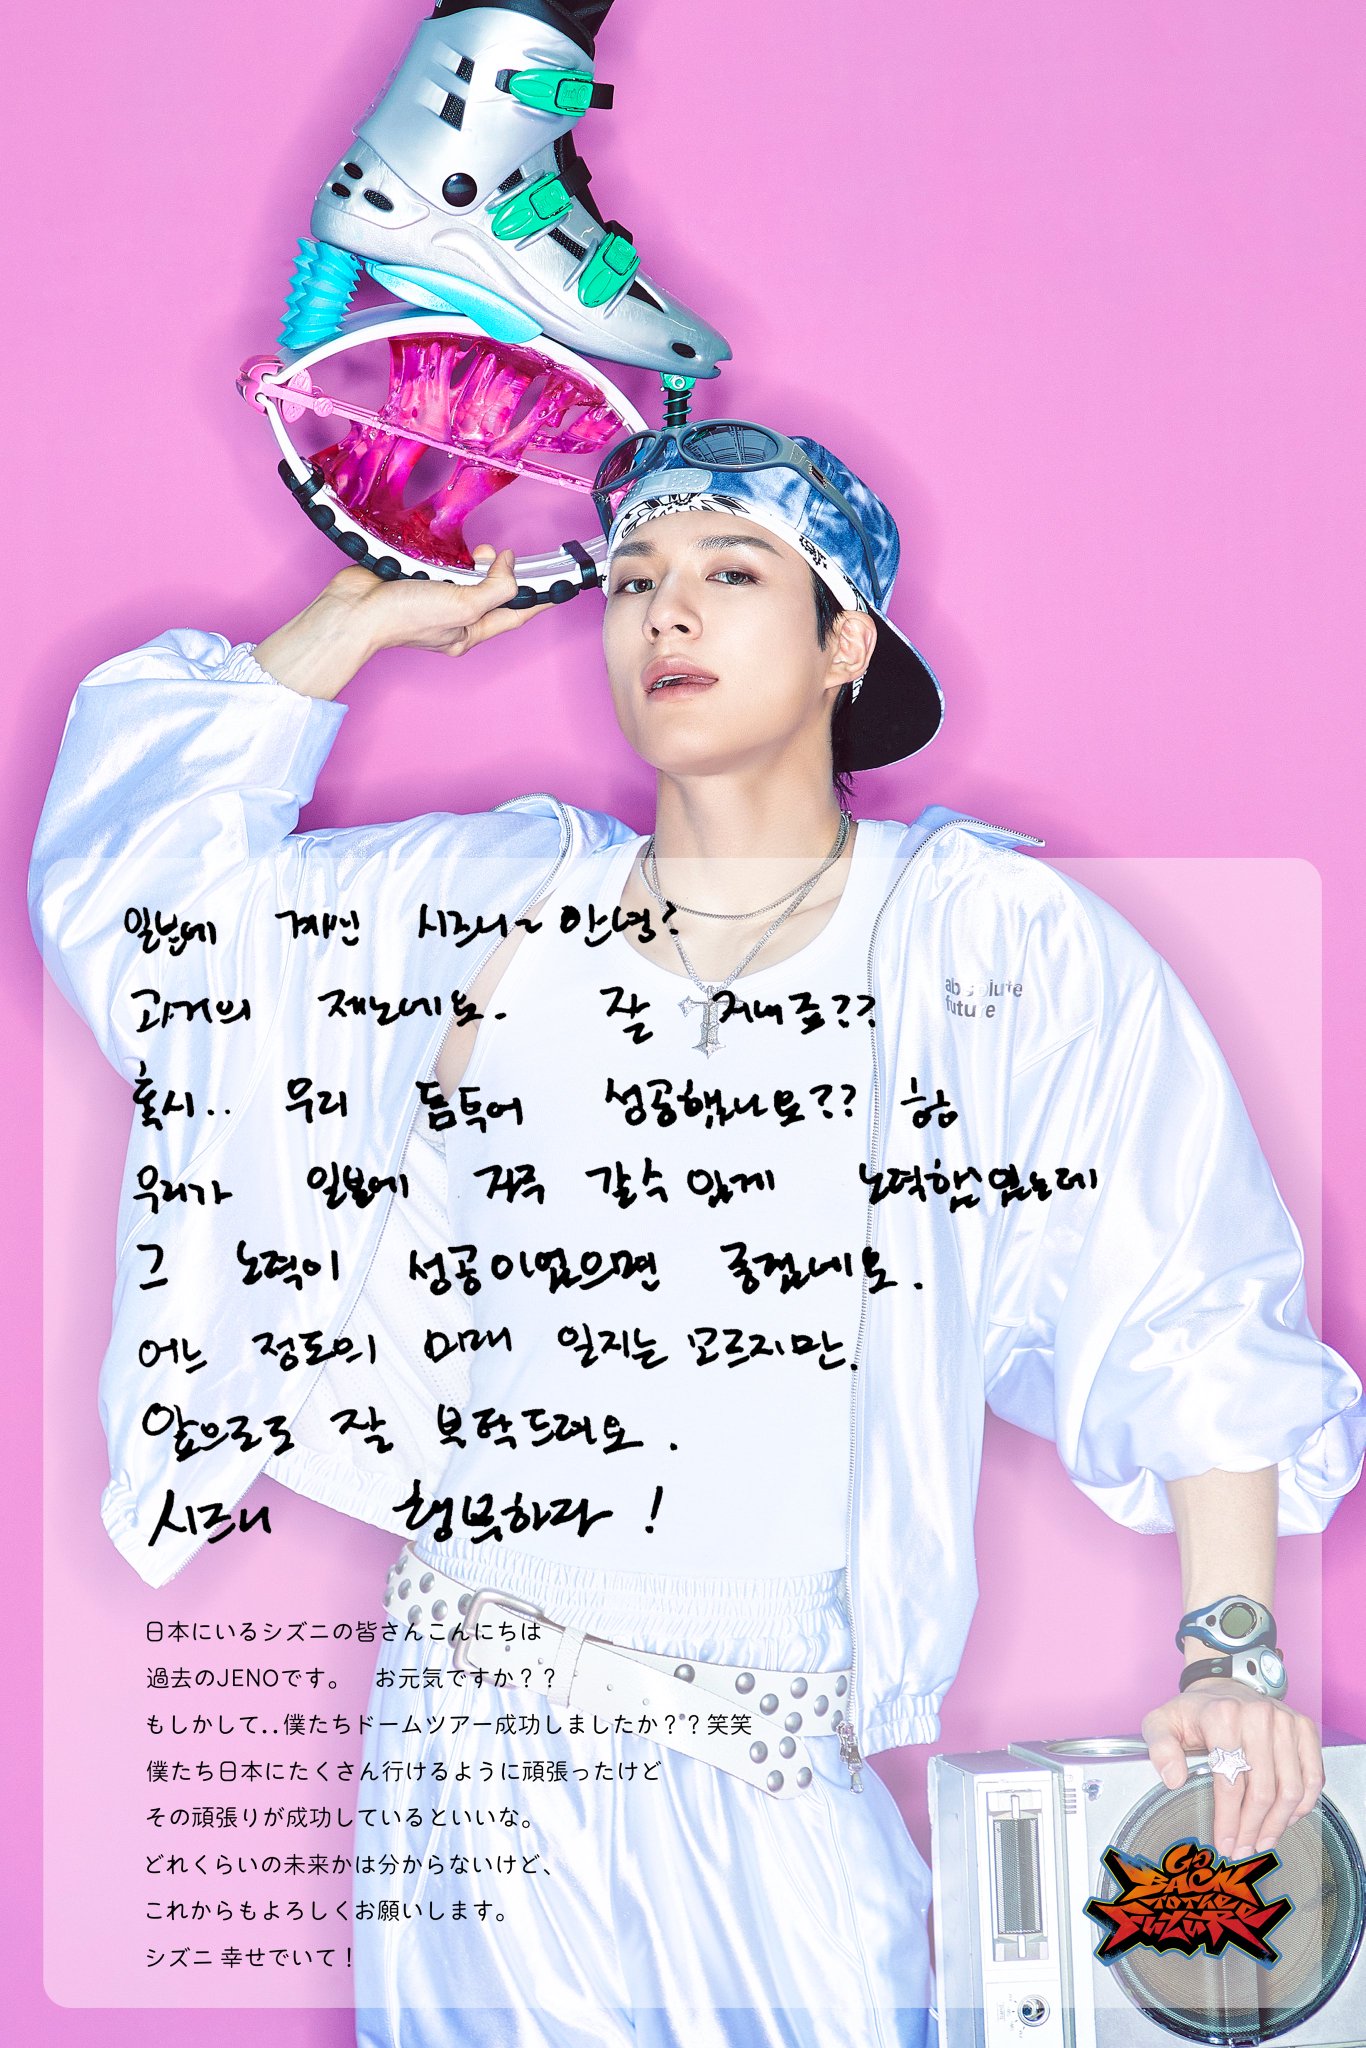 일본에 계신 시즈니~ 안녕?
과거의 제노네요. 잘 지내죠??
혹시.. 우리 돔투어 성공했나요?? ㅎㅎ
우리가 일본에 자주 갈 수 있게 노력했었는데
그 노력이 성공이었으면 좋겠네요.
어느 정도의 미래 일지는 모르지만.
앞으로도 잘 부탁드려요.
시즈니 행복하라!
absolute
future
日本にいるシズニの皆さんこんにちは
過去のJENOです。 お元気ですか？？
もしかして..僕たちドームツアー成功しましたか？？笑笑
僕たち日本にたくさん行けるように頑張ったけど
その頑張りが成功しているといいな。
どれくらいの未来かは分からないけど、
これからもよろしくお願いします。
シズニ 幸せでいて！
GO
BACK
TO THE
FUTURE